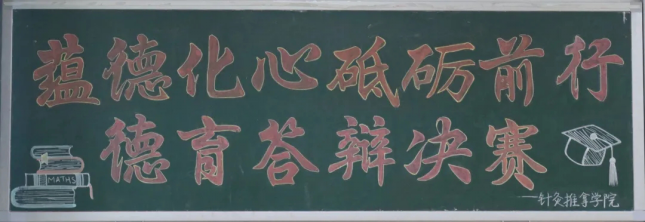 蕴德化心砥砺前行
德育答辩决赛
MATHS
——针灸推拿学院